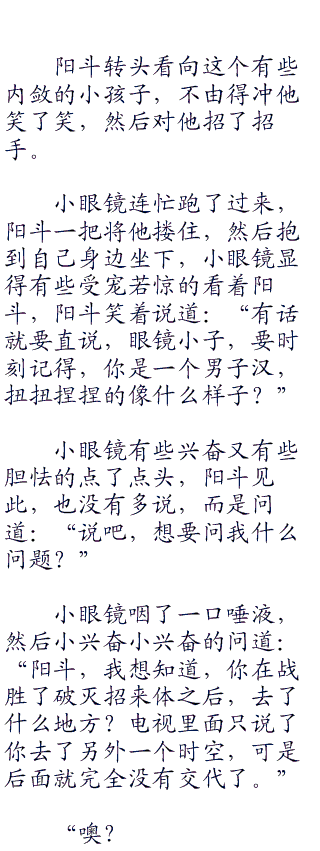 阳斗转头看向这个有些
内敛的小孩子，不由得冲他
笑了笑，然后对他招了招
手。
小眼镜连忙跑了过来，
阳斗一把将他搂住，然后抱
到自己身边坐下，小眼镜显
得有些受宠若惊的看着阳
斗，阳斗笑着说道：“有话
就要直说，眼镜小子，要时
刻记得，你是一个男子汉，
扭扭捏捏的像什么样子？”
小眼镜有些兴奋又有些
胆怯的点了点头，阳斗见
此，也没有多说，而是问
道：“说吧，想要问我什么
问题？”
小眼镜咽了一口唾液，
然后小兴奋小兴奋的问道：
“阳斗，我想知道，你在战
胜了破灭招来体之后，去了
什么地方？电视里面只说了
你去了另外一个时空，可是
后面就完全没有交代了。”
“噢？